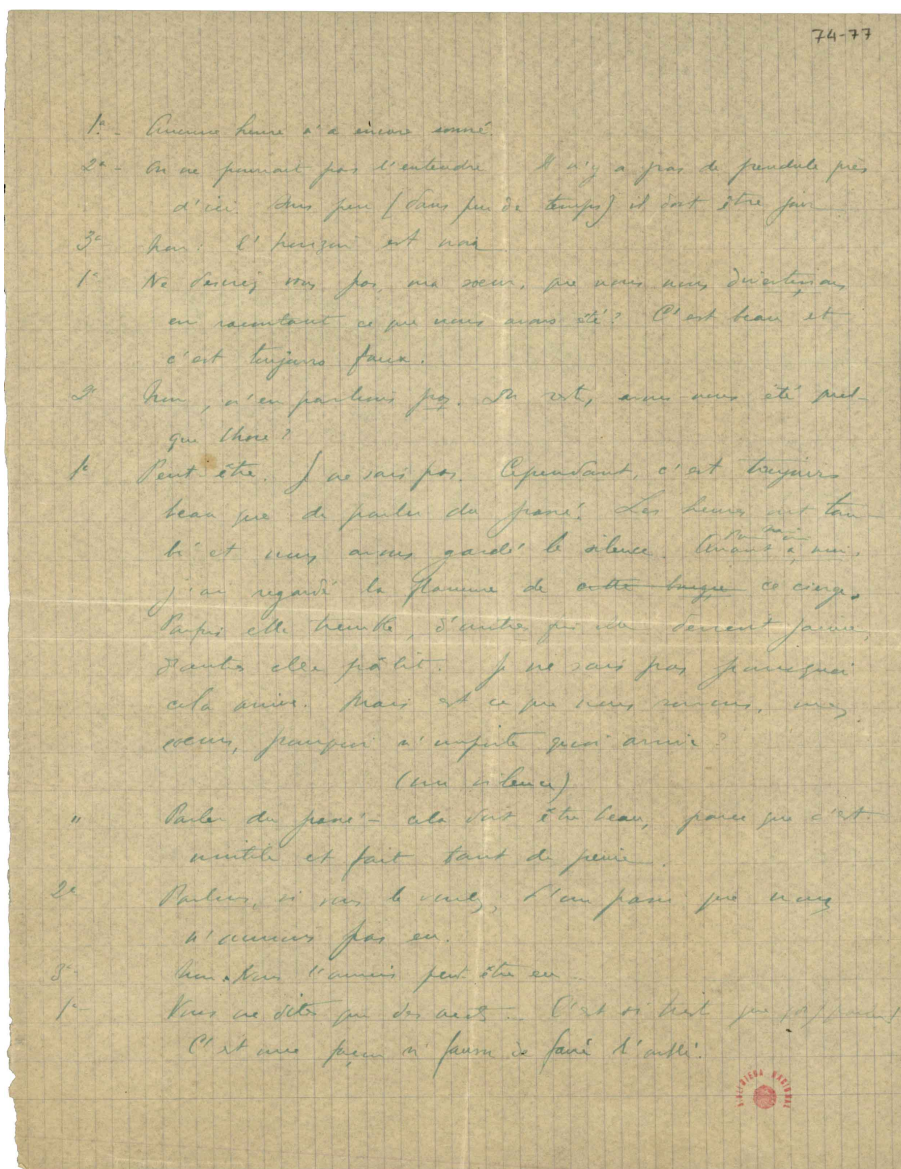 74-77
1ª - Aucune heure n'a encore sonné.
2ª - On ne pourrait pas l'entendre. Il n'y a pas de pendule près
d'ici. Dans peu [dans peu de temps] il doit être jour.
3ª Non: l'horizon est noir.
1ª Ne desirez vous pas, ma soeur, que nous nous divertissions
en racontant ce que nous avons été? C'est beau et
c'est toujours faux.
2ª Non, n'en parlons pas. Du reste, avons-nous été quel-
que chose?
1ª Peut-être. Je ne sais pas. Cependant, c'est toujours
beau que de parler du passé. Les heures ont tom-
bé et nous avons gardé le silence.
j'ai regardé la flamme de cette bougie ce cierge.
Parfois elle tremble, d'autres devient jaune,
d'autres elle pâlit. Je ne sais pas pourquoi
cela arrive. Mais est ce que nous savons, mes
soeurs, pourquoi n'importe quoi arrive?
(un silence)
" Parler du passé - cela doit être beau, parce que c'est
inutile et fait tant de peine.
2ª Parlons, si vous le voulez, d'un passé que nous
n'ayons pas eu.
3ª Non. Nous l'avons peut être eu.
1ª - Vous ne dites que des mots... C'est si triste que
C'est une façon si fausse de
BIBLIOTECA NACIONAL